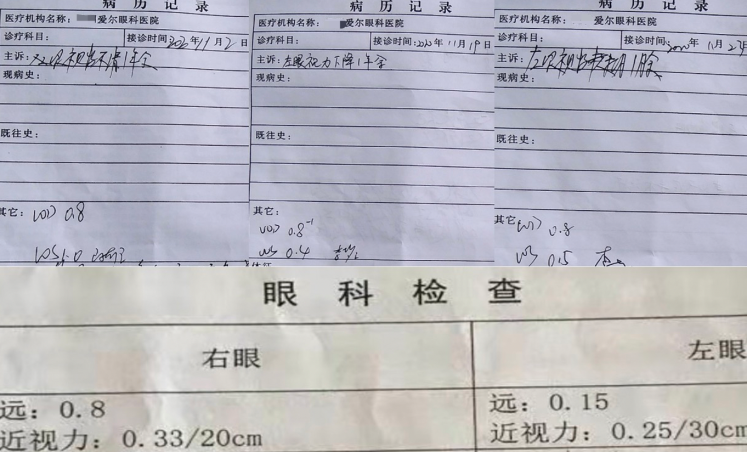 病 历 记 录
医疗机构名称： 爱尔眼科医院
诊疗科目： 接诊时间 2020年11月2日
主诉：双眼视物不清1年余
现病史：
既往史：
其它： VOD 0.8
VOS 1.0
病 历 记 录
医疗机构名称： 爱尔眼科医院
诊疗科目： 接诊时间：2020年11月19日
主诉：左眼视力下降1年余
现病史：
既往史：
其它：
VOD 0.8⁻¹
VOS 0.4
病 历 记 录
医疗机构名称： 爱尔眼科医院
诊疗科目： 接诊时间：2020年11月23日
主诉：左眼视物
现病史：
既往史：
其它： VOD 0.8
VOS 0.15
眼 科 检 查
右眼 左眼
远：0.8 远：0.15
近视力：0.33/20cm 近视力：0.25/30cm